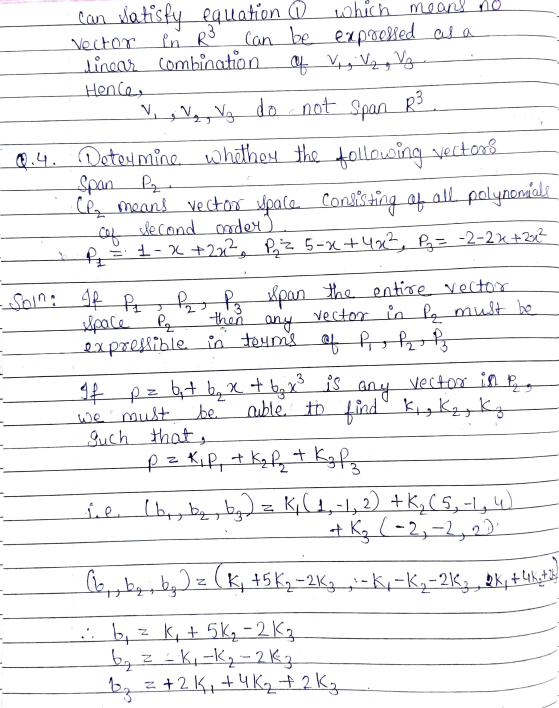 can satisfy equation ① which means no
vector in R³ can be expressed as a
linear combination of V₁, V₂, V₃.
Hence,
V₁, V₂, V₃ do not span R³.
Q.4. Determine whether the following vectors
span P₂.
(P₂ means vector space consisting of all polynomials
of second order).
P₁ = 1 - x + 2x², P₂ = 5 - x + 4x², P₃ = -2 - 2x + 2x²
Soln: If P₁, P₂, P₃ span the entire vector
space P₂ then any vector in P₂ must be
expressible in terms of P₁, P₂, P₃
If p = b₁ + b₂x + b₃x³ is any vector in P₂,
we must be able to find K₁, K₂, K₃
such that,
p = K₁P₁ + K₂P₂ + K₃P₃
i.e. (b₁, b₂, b₃) = K₁(1, -1, 2) + K₂(5, -1, 4)
+ K₃(-2, -2, 2).
(b₁, b₂, b₃) = (K₁ + 5K₂ - 2K₃, -K₁ - K₂ - 2K₃, 2K₁ + 4K₂ + 2K
∴ b₁ = K₁ + 5K₂ - 2K₃
b₂ = -K₁ - K₂ - 2K₃
b₃ = +2K₁ + 4K₂ + 2K₃